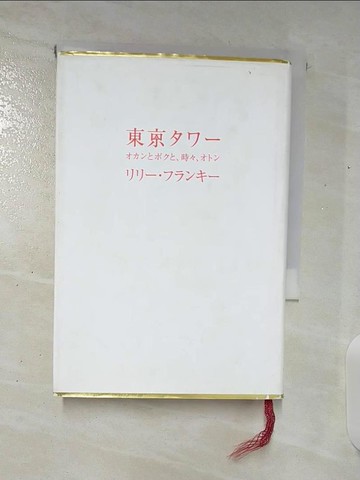 東京タワー
オカンとボクと、時々、オトン
リリー・フランキー